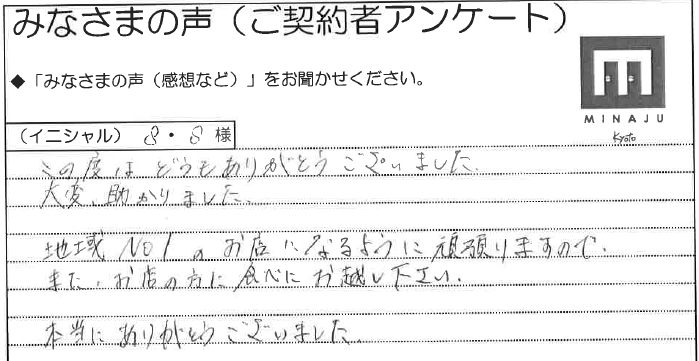 みなさまの声（ご契約者アンケート）
◆「みなさまの声（感想など）」をお聞かせください。
MINAJU
Kyoto
（イニシャル） S・S 様
この度はどうもありがとうございました。
大変、助かりました。
地域NO1のお店になるように頑張りますので、
また、お店の方に食べにお越し下さい。
本当にありがとうございました。